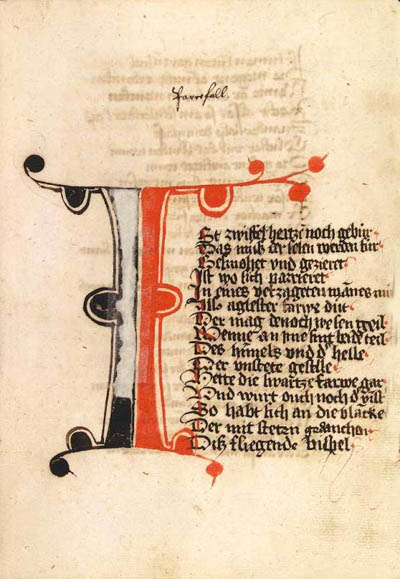 Parcifall.
ISt zwiffel hertze noch gebur
Das muß der selen werden sur
Gesmehet vnd gezieret
Ist wo sich parrieret
In eines verzageten mānes
Als aglester farwe dut
Der mag denoch wesen geil
Wenne an ime sint beide teil
Des himels vnd d' helle
Der vnstete geselle
Hette die swartze farwe gar
Vnd wurt ouch noch d'
So habt sich an die blācke
Der mit stetn gedancken
Diß fliegende bispel